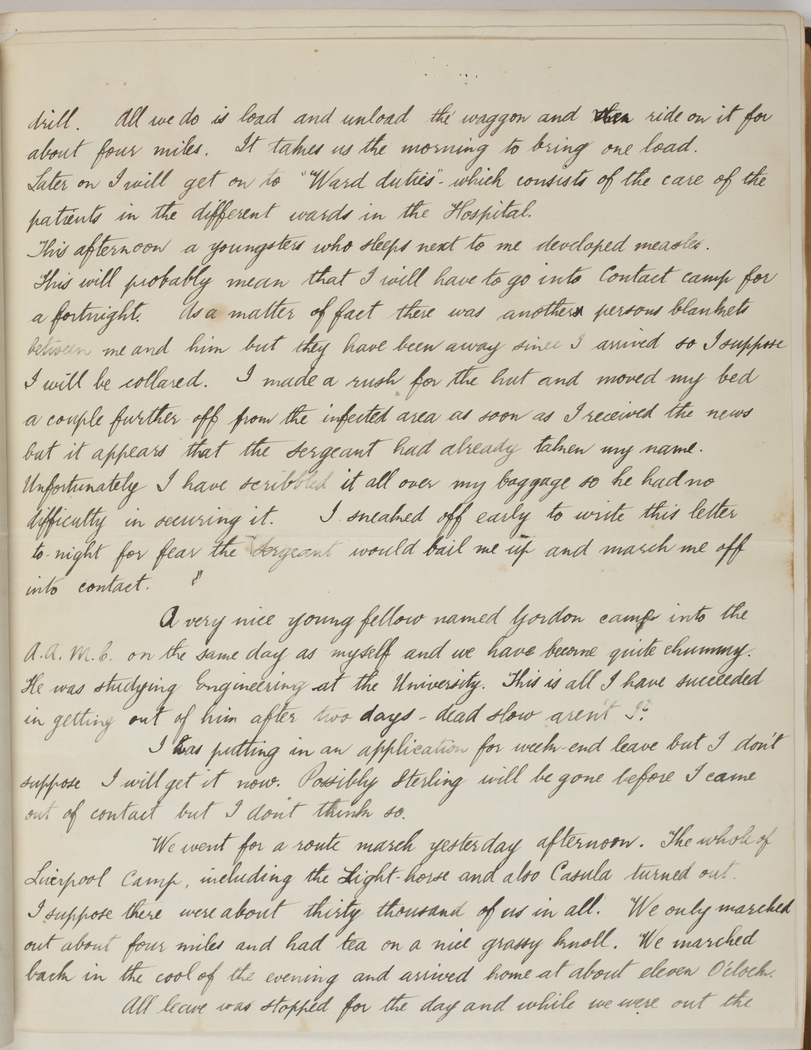 drill. All we do is load and unload the waggon and then ride on it for
about four miles. It takes us the morning to bring one load.
Later on I will get on to "Ward duties" - which consists of the care of the
patients in the different wards in the Hospital.
This afternoon a youngsters who sleeps next to me developed measles.
This will probably mean that I will have to go into Contact camp for
a fortnight. As a matter of fact there was another persons blankets
between me and him but they have been away since I arrived so I suppose
I will be collared. I made a rush for the hut and moved my bed
a couple further off from the infected area as soon as I received the news
but it appears that the sergeant had already taken my name.
Unfortunately I have scribbled it all over my baggage so he had no
difficulty in securing it. I sneaked off early to write this letter
to-night for fear the Sergeant would bail me up and march me off
into contact.
A very nice young fellow named Gordon came into the
A.A.M.C. on the same day as myself and we have become quite chummy.
He was studying Engineering at the University. This is all I have succeeded
in getting out of him after two days - dead slow aren't I?
I was putting in an application for week-end leave but I don't
suppose I will get it now. Possibly Sterling will be gone before I came
out of contact but I don't think so.
We went for a route march yesterday afternoon. The whole of
Liverpool Camp, including the Light-horse and also Casula turned out.
I suppose there were about thirty thousand of us in all. We only marched
out about four miles and had tea on a nice grassy knoll. We marched
back in the cool of the evening and arrived home at about eleven O'clock.
All leave was stopped for the day and while we were out the